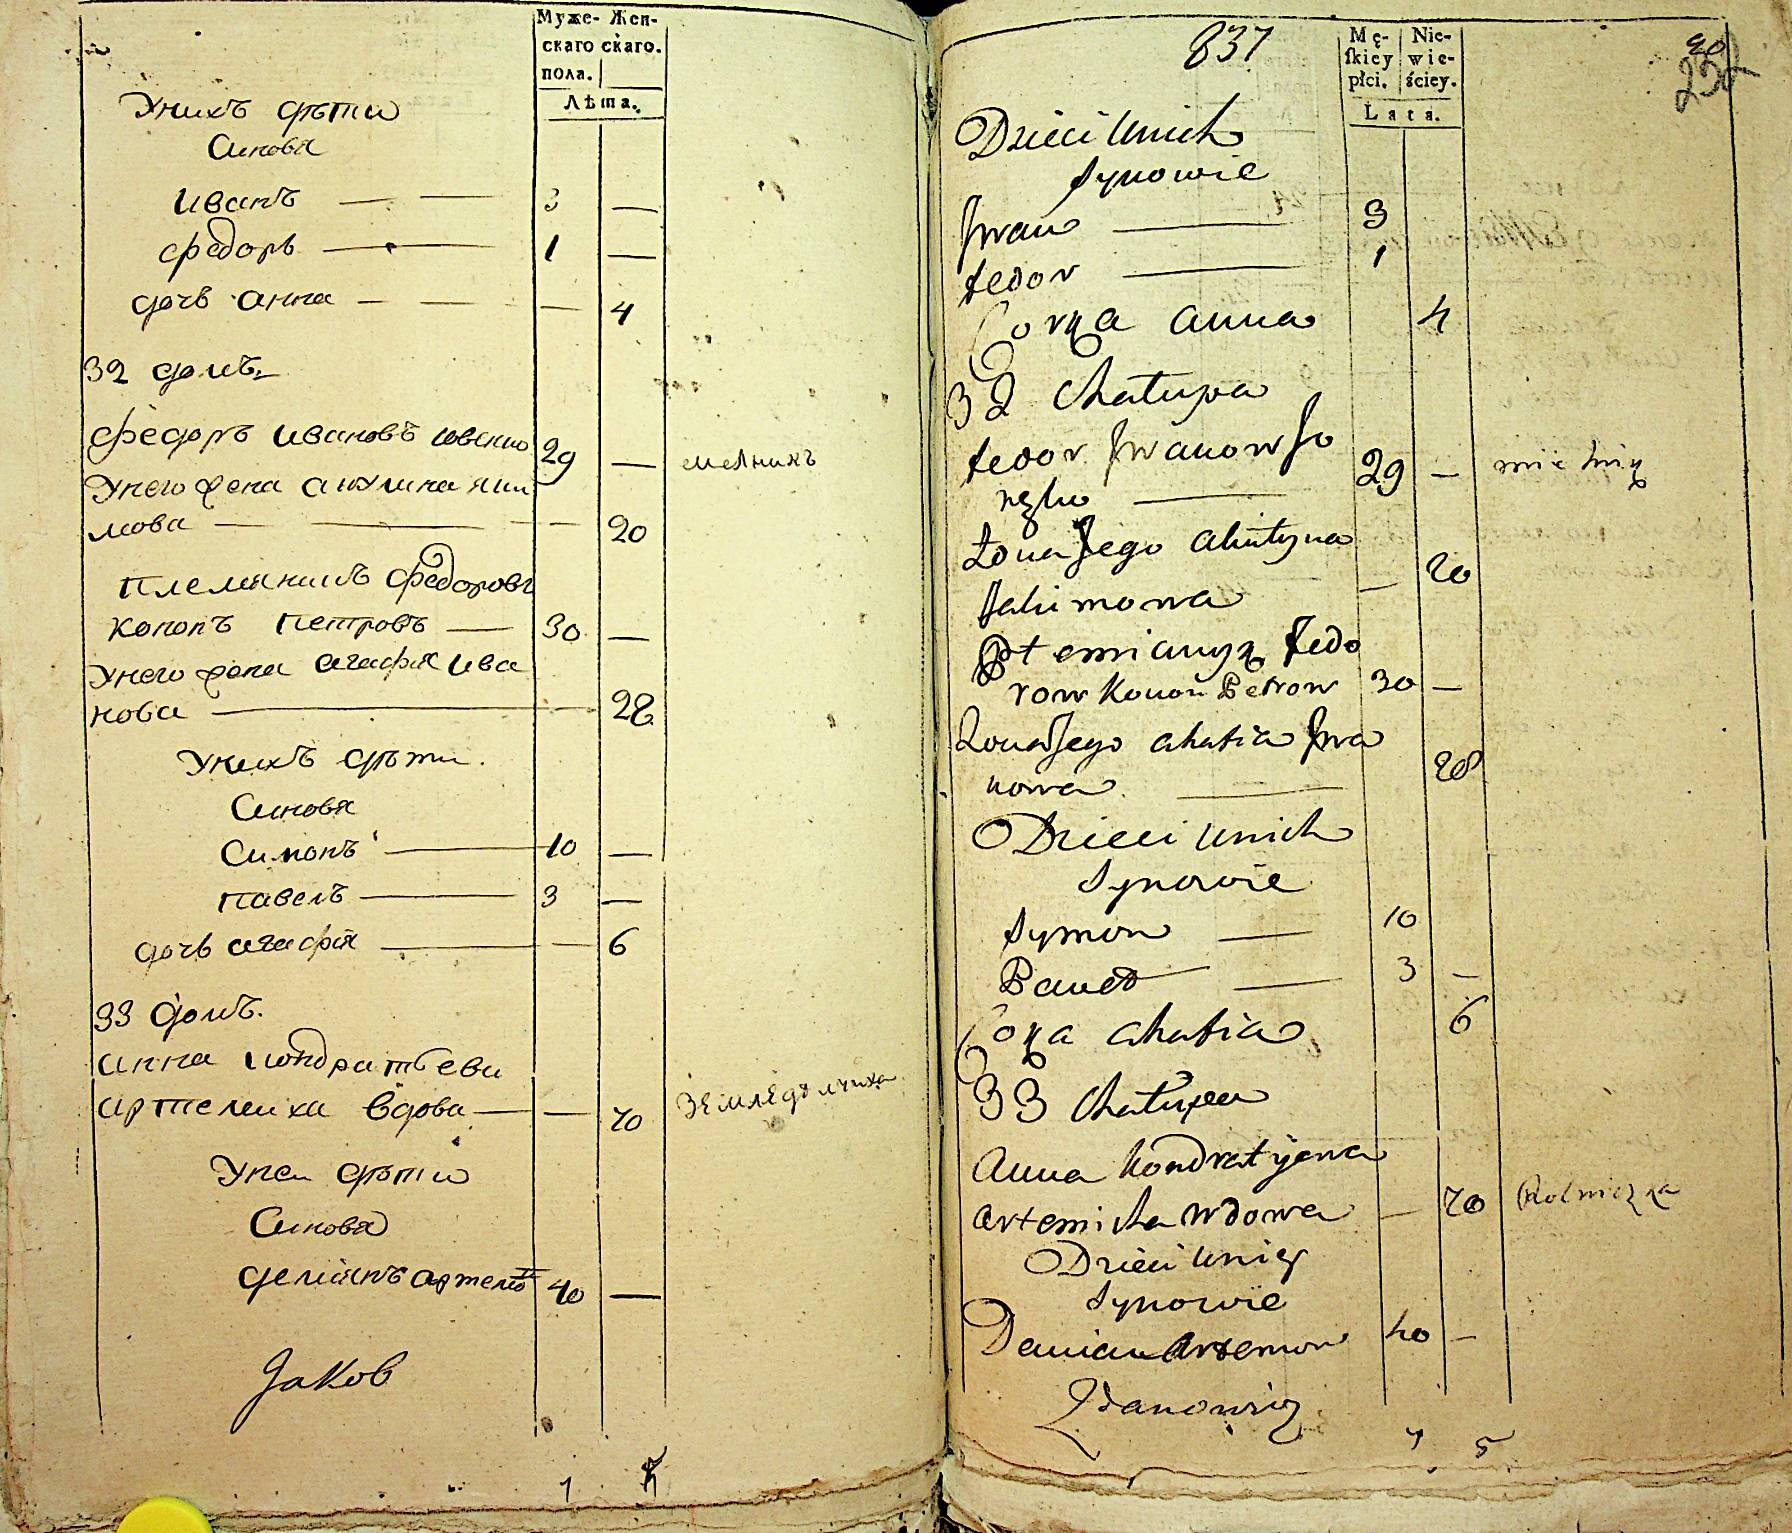 Муже- Жен-
скаго скаго.
пола.
Лѣта.
Унихъ дѣти
Синовя
Иванъ — — 3 —
Федоръ — 1 —
дочь анна — — — 4
32 домъ
Федоръ Ивановъ 29 — мелникъ
Унего жена акулина яки
мова — — — — 20
племянникъ Федоровъ
Кононъ Петровъ — 30 —
Унего жена агафия Ива
нова — — 28
Унихъ дѣти.
Синовя
Симонъ — 10 —
павелъ — 3 —
дочь агафия — — 6
33 домъ.
анна кондратьева
артемиха вдова — — 70 земледѣлчиха
Унеи дѣти
Синовя
демянъ артемов 40 —
Jakob
7 5
837
Mę- Nie-
skiey wie-
płci. ściey.
Lata.
90
252
Dzieci unich
synowie
Jwan — 3
fedor — 1
Corka anna 4
32 Chałupa
fedor Jwanow 29 — mielnik
Żona Jego akulyna
Jakimowa — 20
Płemianyk fedo
row Konon Petrow 30 —
Żona Jego ahafia Jwa
nowa — 28
Dzieci unich
Synowie
Symon — 10
Paweł — 3 —
Coka ahafia 6
33 Chałupa
Anna Kondratjewa
artemicha wdowa — 70 Rolniczka
Dzieci uniey
Synowie
Demian Artemow 40 —
Zdanowicz
7 5